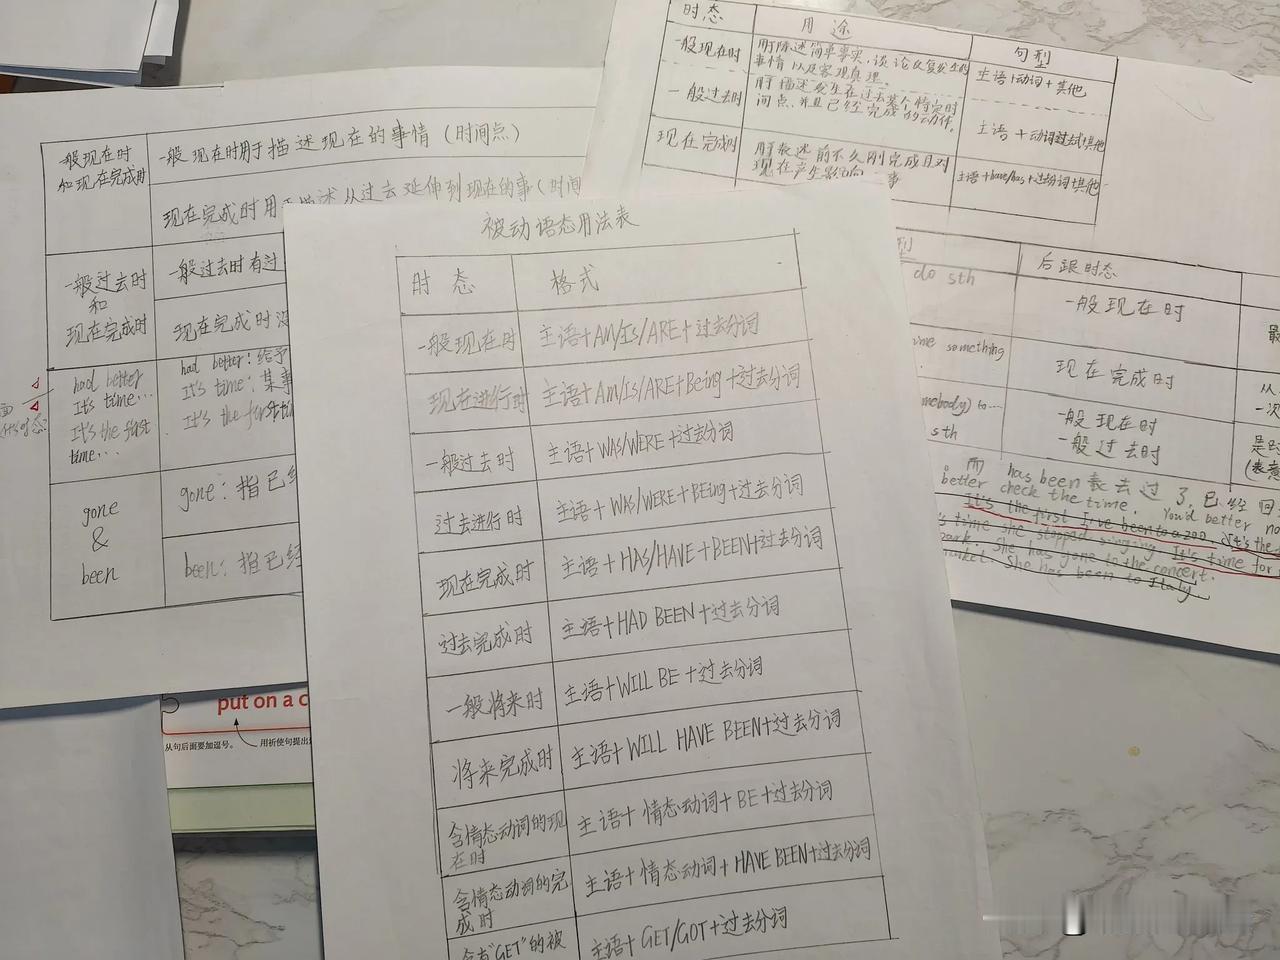 被动语态用法表
时态 格式
一般现在时 主语+AM/IS/ARE+过去分词
现在进行时 主语+AM/IS/ARE+Being+过去分词
一般过去时 主语+WAS/WERE+过去分词
过去进行时 主语+WAS/WERE+BEing+过去分词
现在完成时 主语+HAS/HAVE+BEEN+过去分词
过去完成时 主语+HAD BEEN+过去分词
一般将来时 主语+WILL BE+过去分词
将来完成时 主语+WILL HAVE BEEN+过去分词
含情态动词的现
在时
主语+情态动词+BE+过去分词
含情态动词的完
成时
主语+情态动词+HAVE BEEN+过去分词
含有"GET"的被
主语+GET/GOT+过去分词
一般现在时
和现在完成时
一般现在时用于描述现在的事情(时间点)
现在完成时用于描述从过去延伸到现在的事(时间
一般过去时
和
现在完成时
一般过去时有过
现在完成时没
had better
It's time...
It's the first
time...
had better:给予
It's time:某事
It's the first
gone
&
been
gone:指已经
been:指已经
put on a c
从句后面要加逗号。 用祈使句提出
时态 用途 句型
一般现在时
用于陈述简单事实,谈论反复发生的
事情以及客观真理。
主语+动词+其他
一般过去时
用于描述发生在过去某个特定时
间点,并且已经完成的动作。
主语+动词过去式+其他
现在完成时
用于叙述前不久刚完成且对
现在产生影响 事
主语+have/has+过去分词+其他
型 后跟时态
do sth 一般现在时
ime something 现在完成时
mebody) to...
sth
一般现在时
一般过去时
最
从
一次
是
而 has been 表去过了,已经回
better check the time. You'd better no
It's the first I've been to a zoo. It's the
s time she stopped singing. It's time for
park. She has gone to the concert.
market. She has been to Italy